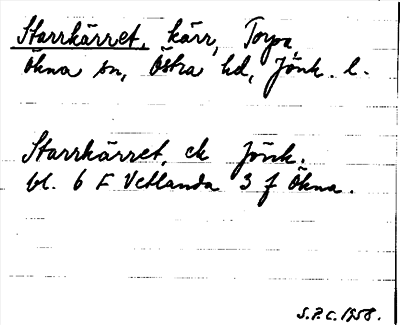 Starrkärret, kärr, Torpa,
Ökna sn, Östra hd, Jönk. l.
Starrkärret, ek Jönk.
bl. 6 F Vetlanda 3 f Ökna.
S.P.C. 1958.